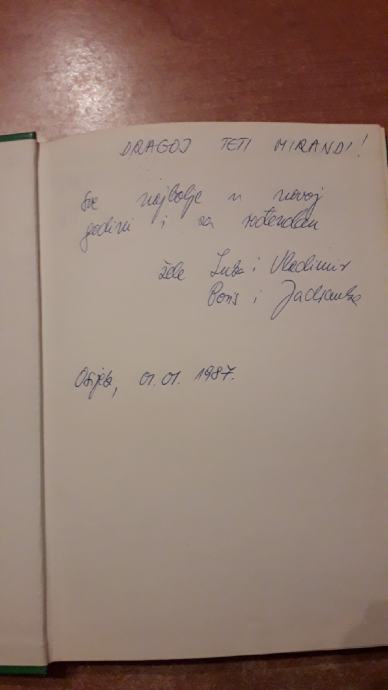 DRAGOJ TETI MIRANDI!
Sve najbolje u novoj
godini i za rođendan
žele Luba i Vladimir
Boris i Jadranka
Osijek, 01.01. 1987.